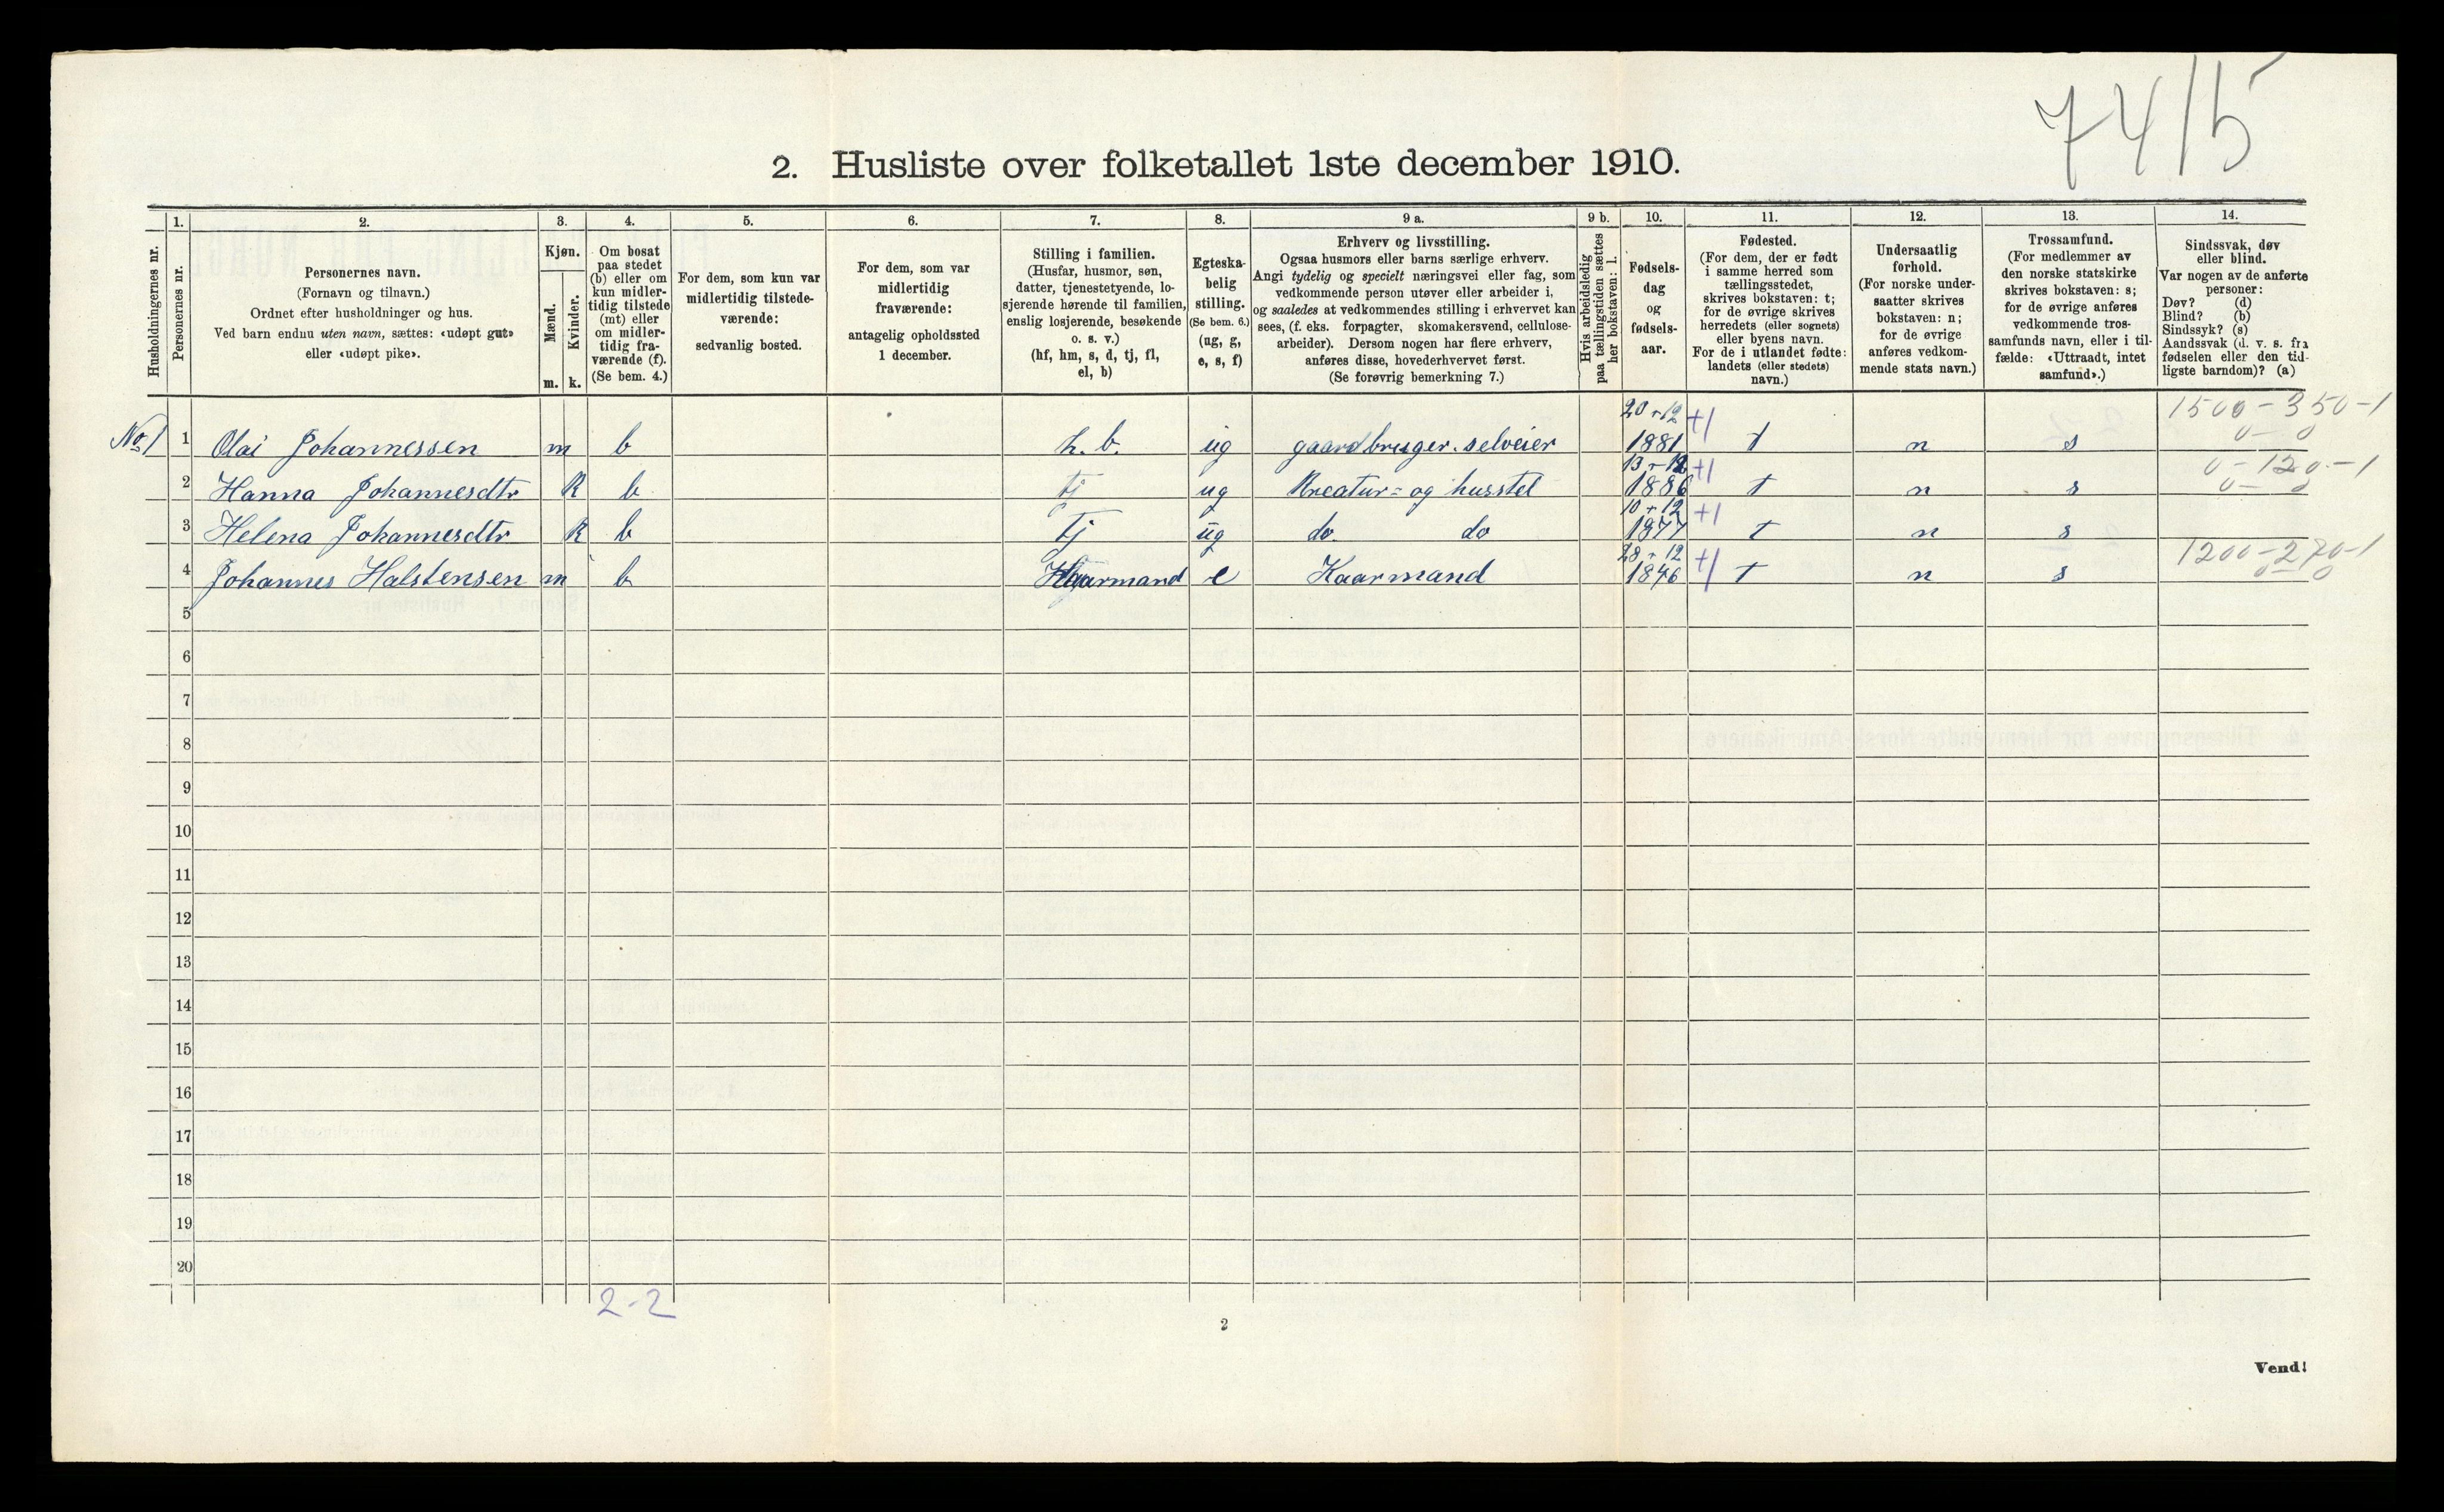 74/5
2. Husliste over folketallet 1ste december 1910.
Husholdningernes nr.
1.
Personernes nr.
2.
Personernes navn.
(Fornavn og tilnavn.)
Ordnet efter husholdninger og hus.
Ved barn endnu uten navn, sættes: «udøpt gut»
eller «udøpt pike».
3.
Kjøn.
Mænd.
Kvinder.
m. k.
4.
Om bosat
paa stedet
(b) eller om
kun midler-
tidig tilstede
(mt) eller
om midler-
tidig fra-
værende (f).
(Se bem. 4.)
5.
For dem, som kun var
midlertidig tilstede-
værende:
sedvanlig bosted.
6.
For dem, som var
midlertidig
fraværende:
antagelig opholdssted
1 december.
7.
Stilling i familien.
(Husfar, husmor, søn,
datter, tjenestetyende, lo-
sjerende hørende til familien,
enslig losjerende, besøkende
o. s. v.)
(hf, hm, s, d, tj, fl,
el, b)
8.
Egteska-
belig
stilling.
(Se bem. 6.)
(ug, g,
e, s, f)
9 a.
Erhverv og livsstilling.
Ogsaa husmors eller barns særlige erhverv.
Angi tydelig og specielt næringsvei eller fag, som
vedkommende person utøver eller arbeider i,
og saaledes at vedkommendes stilling i erhvervet kan
sees, (f. eks. forpagter, skomakersvend, cellulose-
arbeider). Dersom nogen har flere erhverv,
anføres disse, hovederhvervet først.
(Se forøvrig bemerkning 7.)
9 b.
Hvis arbeidsledig
paa tællingstiden sættes
her bokstaven: l.
10.
Fødsels-
dag
og
fødsels-
aar.
11.
Fødested.
(For dem, der er født
i samme herred som
tællingsstedet,
skrives bokstaven: t;
for de øvrige skrives
herredets (eller sognets)
eller byens navn.
For de i utlandet fødte:
landets (eller stedets)
navn.)
12.
Undersaatlig
forhold.
(For norske under-
saatter skrives
bokstaven: n;
for de øvrige
anføres vedkom-
mende stats navn.)
13.
Trossamfund.
(For medlemmer av
den norske statskirke
skrives bokstaven: s;
for de øvrige anføres
vedkommende tros-
samfunds navn, eller i til-
fælde: «Uttraadt, intet
samfund».)
14.
Sindssvak, døv
eller blind.
Var nogen av de anførte
personer:
Døv? (d)
Blind? (b)
Sindssyk? (s)
Aandssvak (d. v. s. fra
fødselen eller den tid-
ligste barndom)? (a)
20-12 +1 1500-350-1
No 1 1 Olai Johannessen m b h.b. ug gaardbruger. selveier 1881 t n s 0-0
13-12 +1 0-120-1
2 Hanna Johannesdtr K b tj ug Kreatur= og husstel 1886 t n s 0-0
10-12 +1
3 Helena Johannesdtr K b tj ug do do 1877 t n s
28-12 +1 1200-270-1
4 Johannes Halstensen m b Kaarmand e Kaarmand 1846 t n s 0-0
5
6
7
8
9
10
11
12
13
14
15
16
17
18
19
20
2-2
2
Vend!